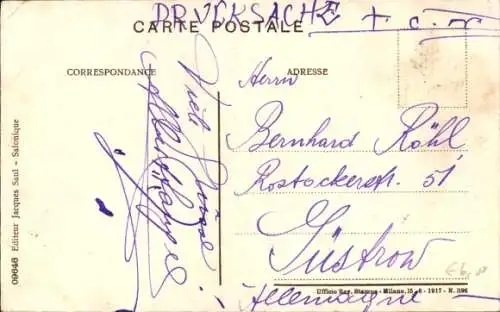 DRUCKSACHE
CARTE POSTALE
CORRESPONDANCE
ADRESSE
Viel Grüsse
Herrn
Bernhard Röhl
Rostockerstr. 51
Güstrow
Allemagne
09646 Editeur Jacques Saul - Salonique
Ufficio Rev. Stampa - Milano, 15-6-1917 - N. 396